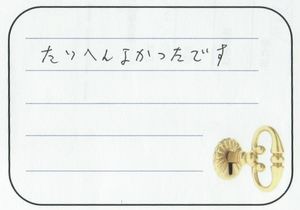 たいへんよかったです